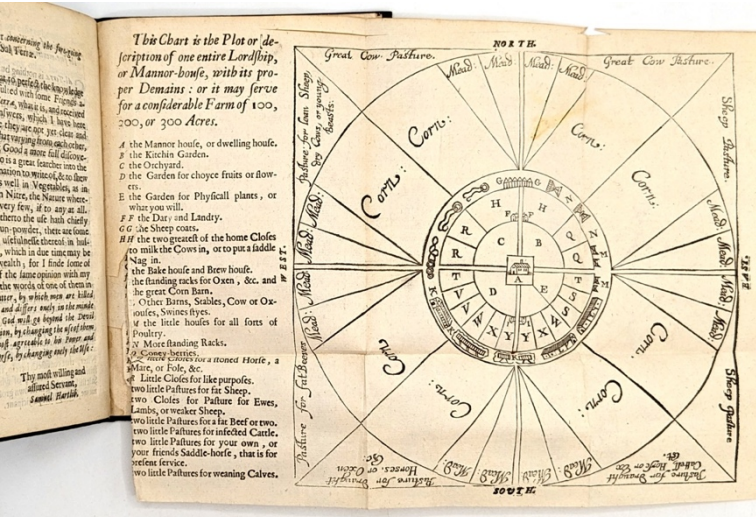 nt concerning the foregoing
to perfect the knowledge
sulted with some Friends a-
what it is, and received
swers, which I have been
they are not yet clear and
but varying from each other,
Good a more full discove-
o is a great searcher into the
nation to write of, & to shew
s well in Vegetables, as in
n Nitre, the Nature where-
very few, if to any at all.
therto the use hath chiefly
un-powder, there are some
usefulnesse thereof in hus-
which in due time may be
wealth; for I finde some of
f the same opinion with my
the words of one of them in
by which men are killed
and differs onely in the minde
God will go beyond the Devil
by changing the use of them
agreeable to his Power and
by changing onely the Use:
Thy most willing and
assured Servant,
Samuel Hartlib.
This Chart is the Plot or de-
scription of one entire Lordship,
or Mannor-house, with its pro-
per Demains: or it may serve
for a considerable Farm of 100,
200, or 300 Acres.
A the Mannor house, or dwelling house.
B the Kitchin Garden.
C the Orchyard.
D the Garden for choyce fruits or flow-
ers.
E the Garden for Physicall plants, or
what you will.
F F the Dary and Landry.
GG the Sheep coats.
HH the two greatest of the home Closes
to milk the Cows in, or to put a saddle
Nag in.
the Bake house and Brew house.
the standing racks for Oxen, &c. and
the great Corn Barn.
Other Barns, Stables, Cow or Ox-
houses, Swines styes.
M the little houses for all sorts of
Poultry.
N More standing Racks.
O Coney-berries.
Closes for a stoned Horse, a
Mare, or Fole, &c.
Little Closes for like purposes.
two little Pastures for fat Sheep.
two Closes for Pasture for Ewes,
Lambs, or weaker Sheep.
two little Pastures for a fat Beef or two.
two little Pastures for infected Cattle.
two little Pastures for your own, or
your friends Saddle-horse, that is for
present service.
two little Pastures for weaning Calves.
NORTH.
Great Cow Pasture.
Mead:
Mead:
Mead:
Mead:
Great Cow Pasture.
Pasture for lean Sheep,
dry Cows, or young
beasts:
Corn:
Corn:
Corn:
Corn:
Sheep Pasture.
Mead:
Mead:
Mead:
Mead:
WEST.
EAST
G G
H F F H
R C B Q
R Q
N N
T A T
V D E S
V S
W X Y Y X W
K K
Mead:
Mead:
Mead:
Mead:
Corn:
Corn:
Corn:
Corn:
Pasture for fat Beeves
Sheep Pasture
Mead:
Mead:
Mead:
Mead:
Pasture for Draught
Horses. or Oxen
&c:
Pasture for Draught
Cattell, Horse or Ox
&c.
SOUTH